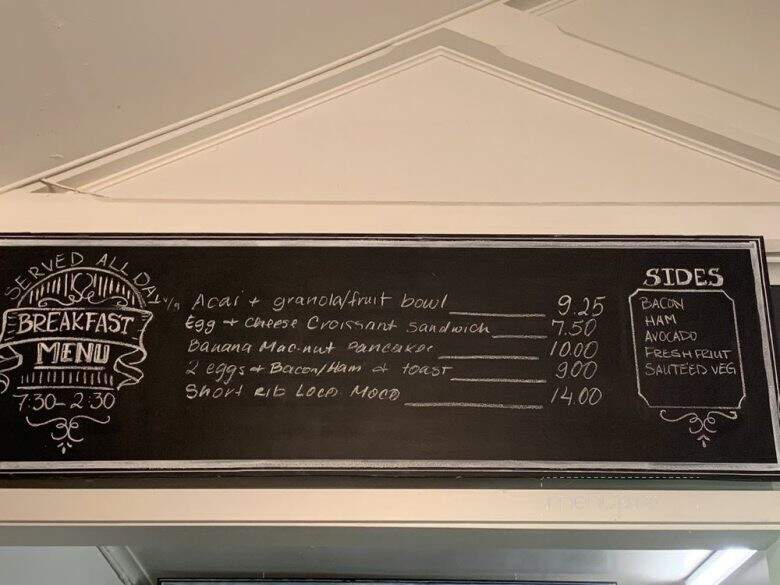 SERVED ALL DAY
BREAKFAST
MENU
7:30-2:30
v/g Acai + granola/fruit bowl 9.25
Egg + Cheese Croissant sandwich 7.50
Banana Mac-nut Pancakes 10.00
2 eggs + Bacon/Ham + toast 900
Short Rib Loco Moco 14.00
SIDES
BACON
HAM
AVOCADO
FRESH FRIUT
SAUTEED VEG